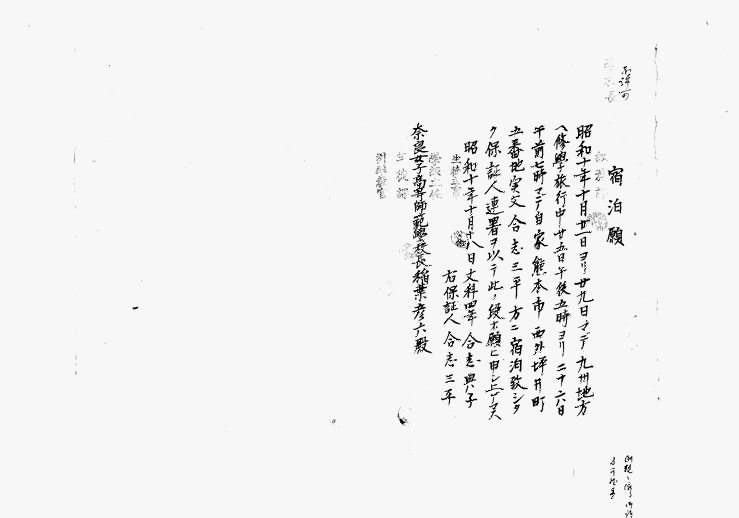 不許可
宿泊願
昭和十年十月廿一日ヨリ廿九日マデ九州地方
ヘ修學旅行中廿五日午後五時ヨリ二十六日
午前七時マデ自家熊本市西外坪井町
五番地実父合志三平方ニ宿泊致シタ
ク保証人連署ヲ以テ此ノ段お願ヒ申シ上ゲマス
昭和十年十月十八日文科四年合志典子
右保証人合志三平
奈良女子高等師範學校長稲葉彦六殿